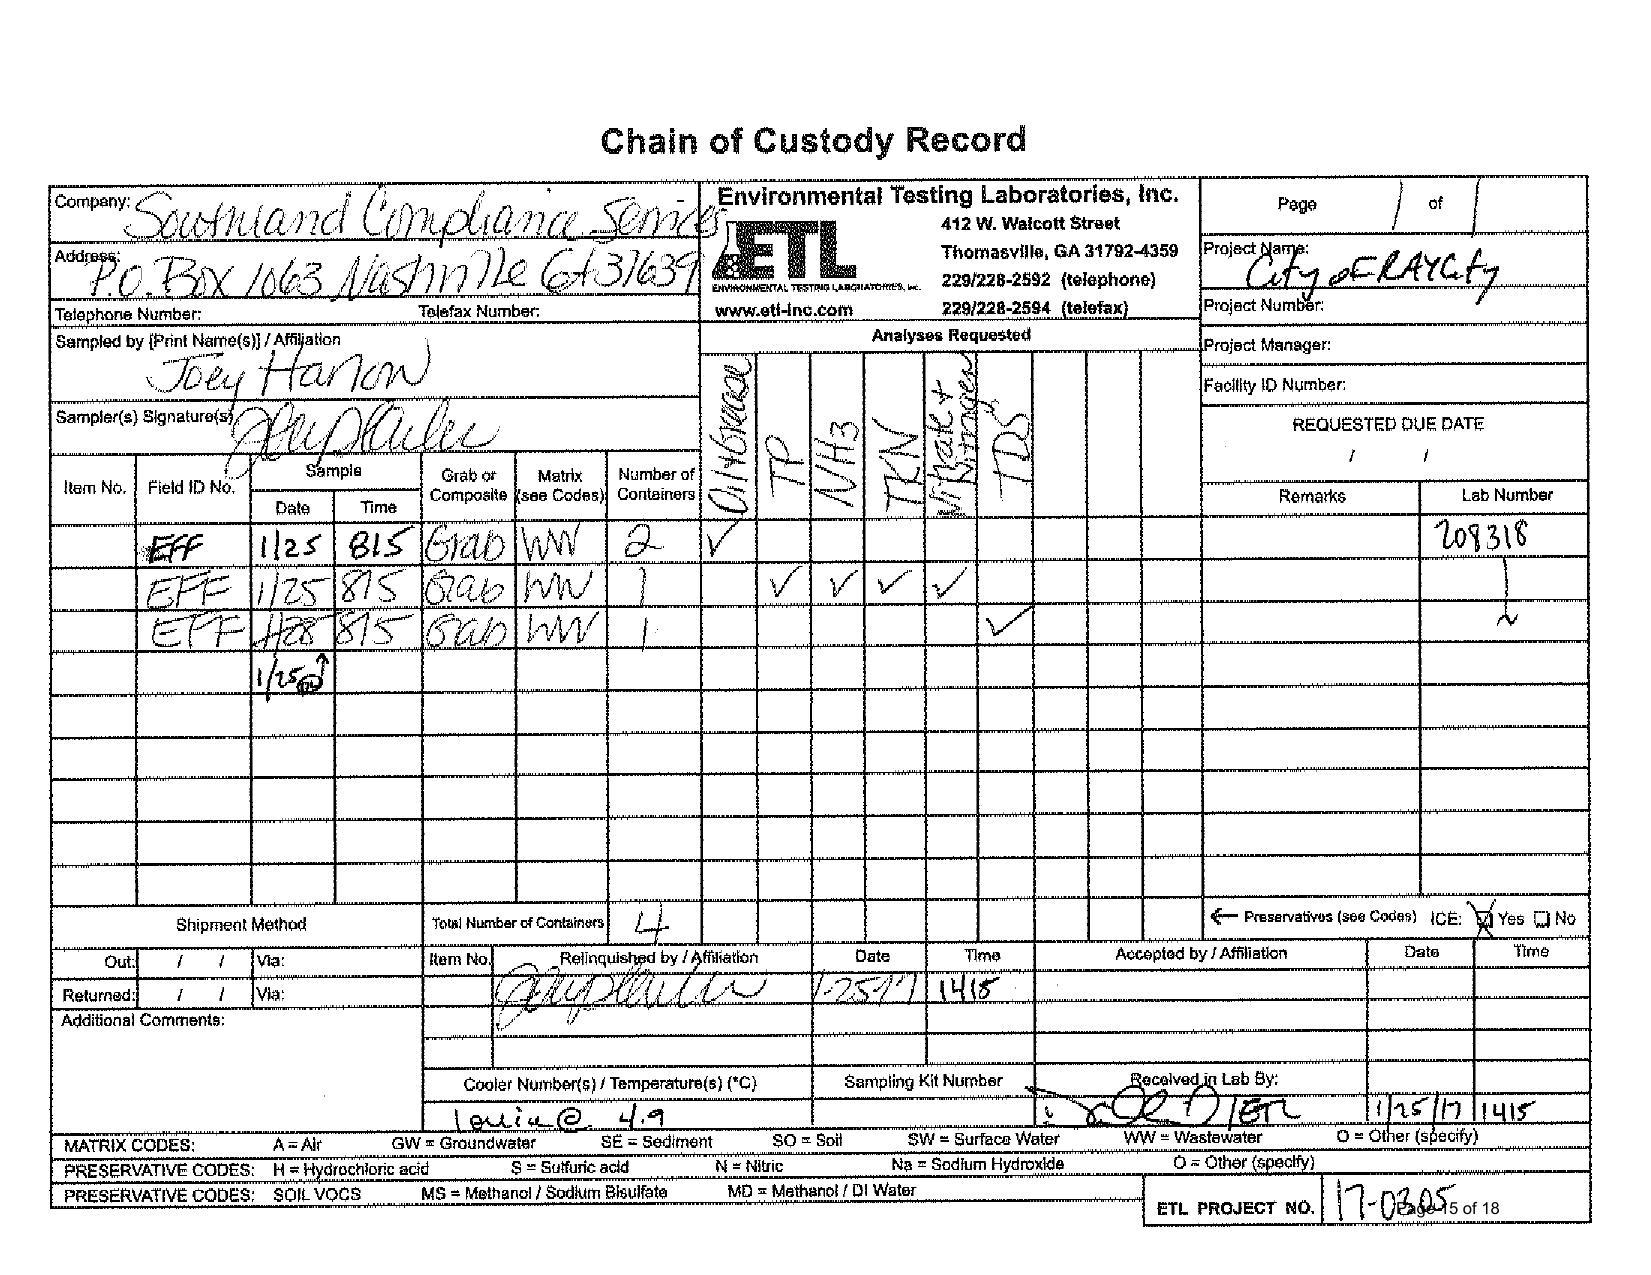 Chain of Custody Record
Company: Southland Compliance Services
Address: P.O. Box 1063 Nashville GA 31639
Telephone Number: Telefax Number:
Environmental Testing Laboratories, Inc.
ETL
ENVIRONMENTAL TESTING LABORATORIES, INC.
412 W. Walcott Street
Thomasville, GA 31792-4359
229/228-2592 (telephone)
www.etl-inc.com 229/228-2594 (telefax)
Page 1 of 1
Project Name: City of RAY City
Project Number:
Sampled by [Print Name(s)] / Affiliation
Joey
Sampler(s) Signature(s)
Analyses Requested
Project Manager:
Facility ID Number:
REQUESTED DUE DATE
/ /
Item No. Field ID No. Sample Date Time Grab or Composite Matrix (see Codes) Number of Containers Oil+Grease TP NH3 TKN Nitrate + TDS Remarks Lab Number
EFF 1/25 815 Grab WW 2 ✓ 208318
EFF 1/25 815 Grab WW 1 ✓ ✓ ✓ ✓
EFF 815 Grab WW 1 ✓
1/25
Shipment Method Total Number of Containers 4 ← Preservatives (see Codes) ICE: ☒ Yes ☐ No
Out: / / Via: Item No. Relinquished by / Affiliation Date Time Accepted by / Affiliation Date Time
Returned: / / Via: 1-25-17 1415
Additional Comments:
Cooler Number(s) / Temperature(s) (°C) Sampling Kit Number Received in Lab By:
@ 4.9 / ETL 1/25/17 1415
MATRIX CODES: A = Air GW = Groundwater SE = Sediment SO = Soil SW = Surface Water WW = Wastewater O = Other (specify)
PRESERVATIVE CODES: H = Hydrochloric acid S = Sulfuric acid N = Nitric Na = Sodium Hydroxide O = Other (specify)
PRESERVATIVE CODES: SOIL VOCS MS = Methanol / Sodium Bisulfate MD = Methanol / DI Water
ETL PROJECT NO. 17-0305
Page 15 of 18